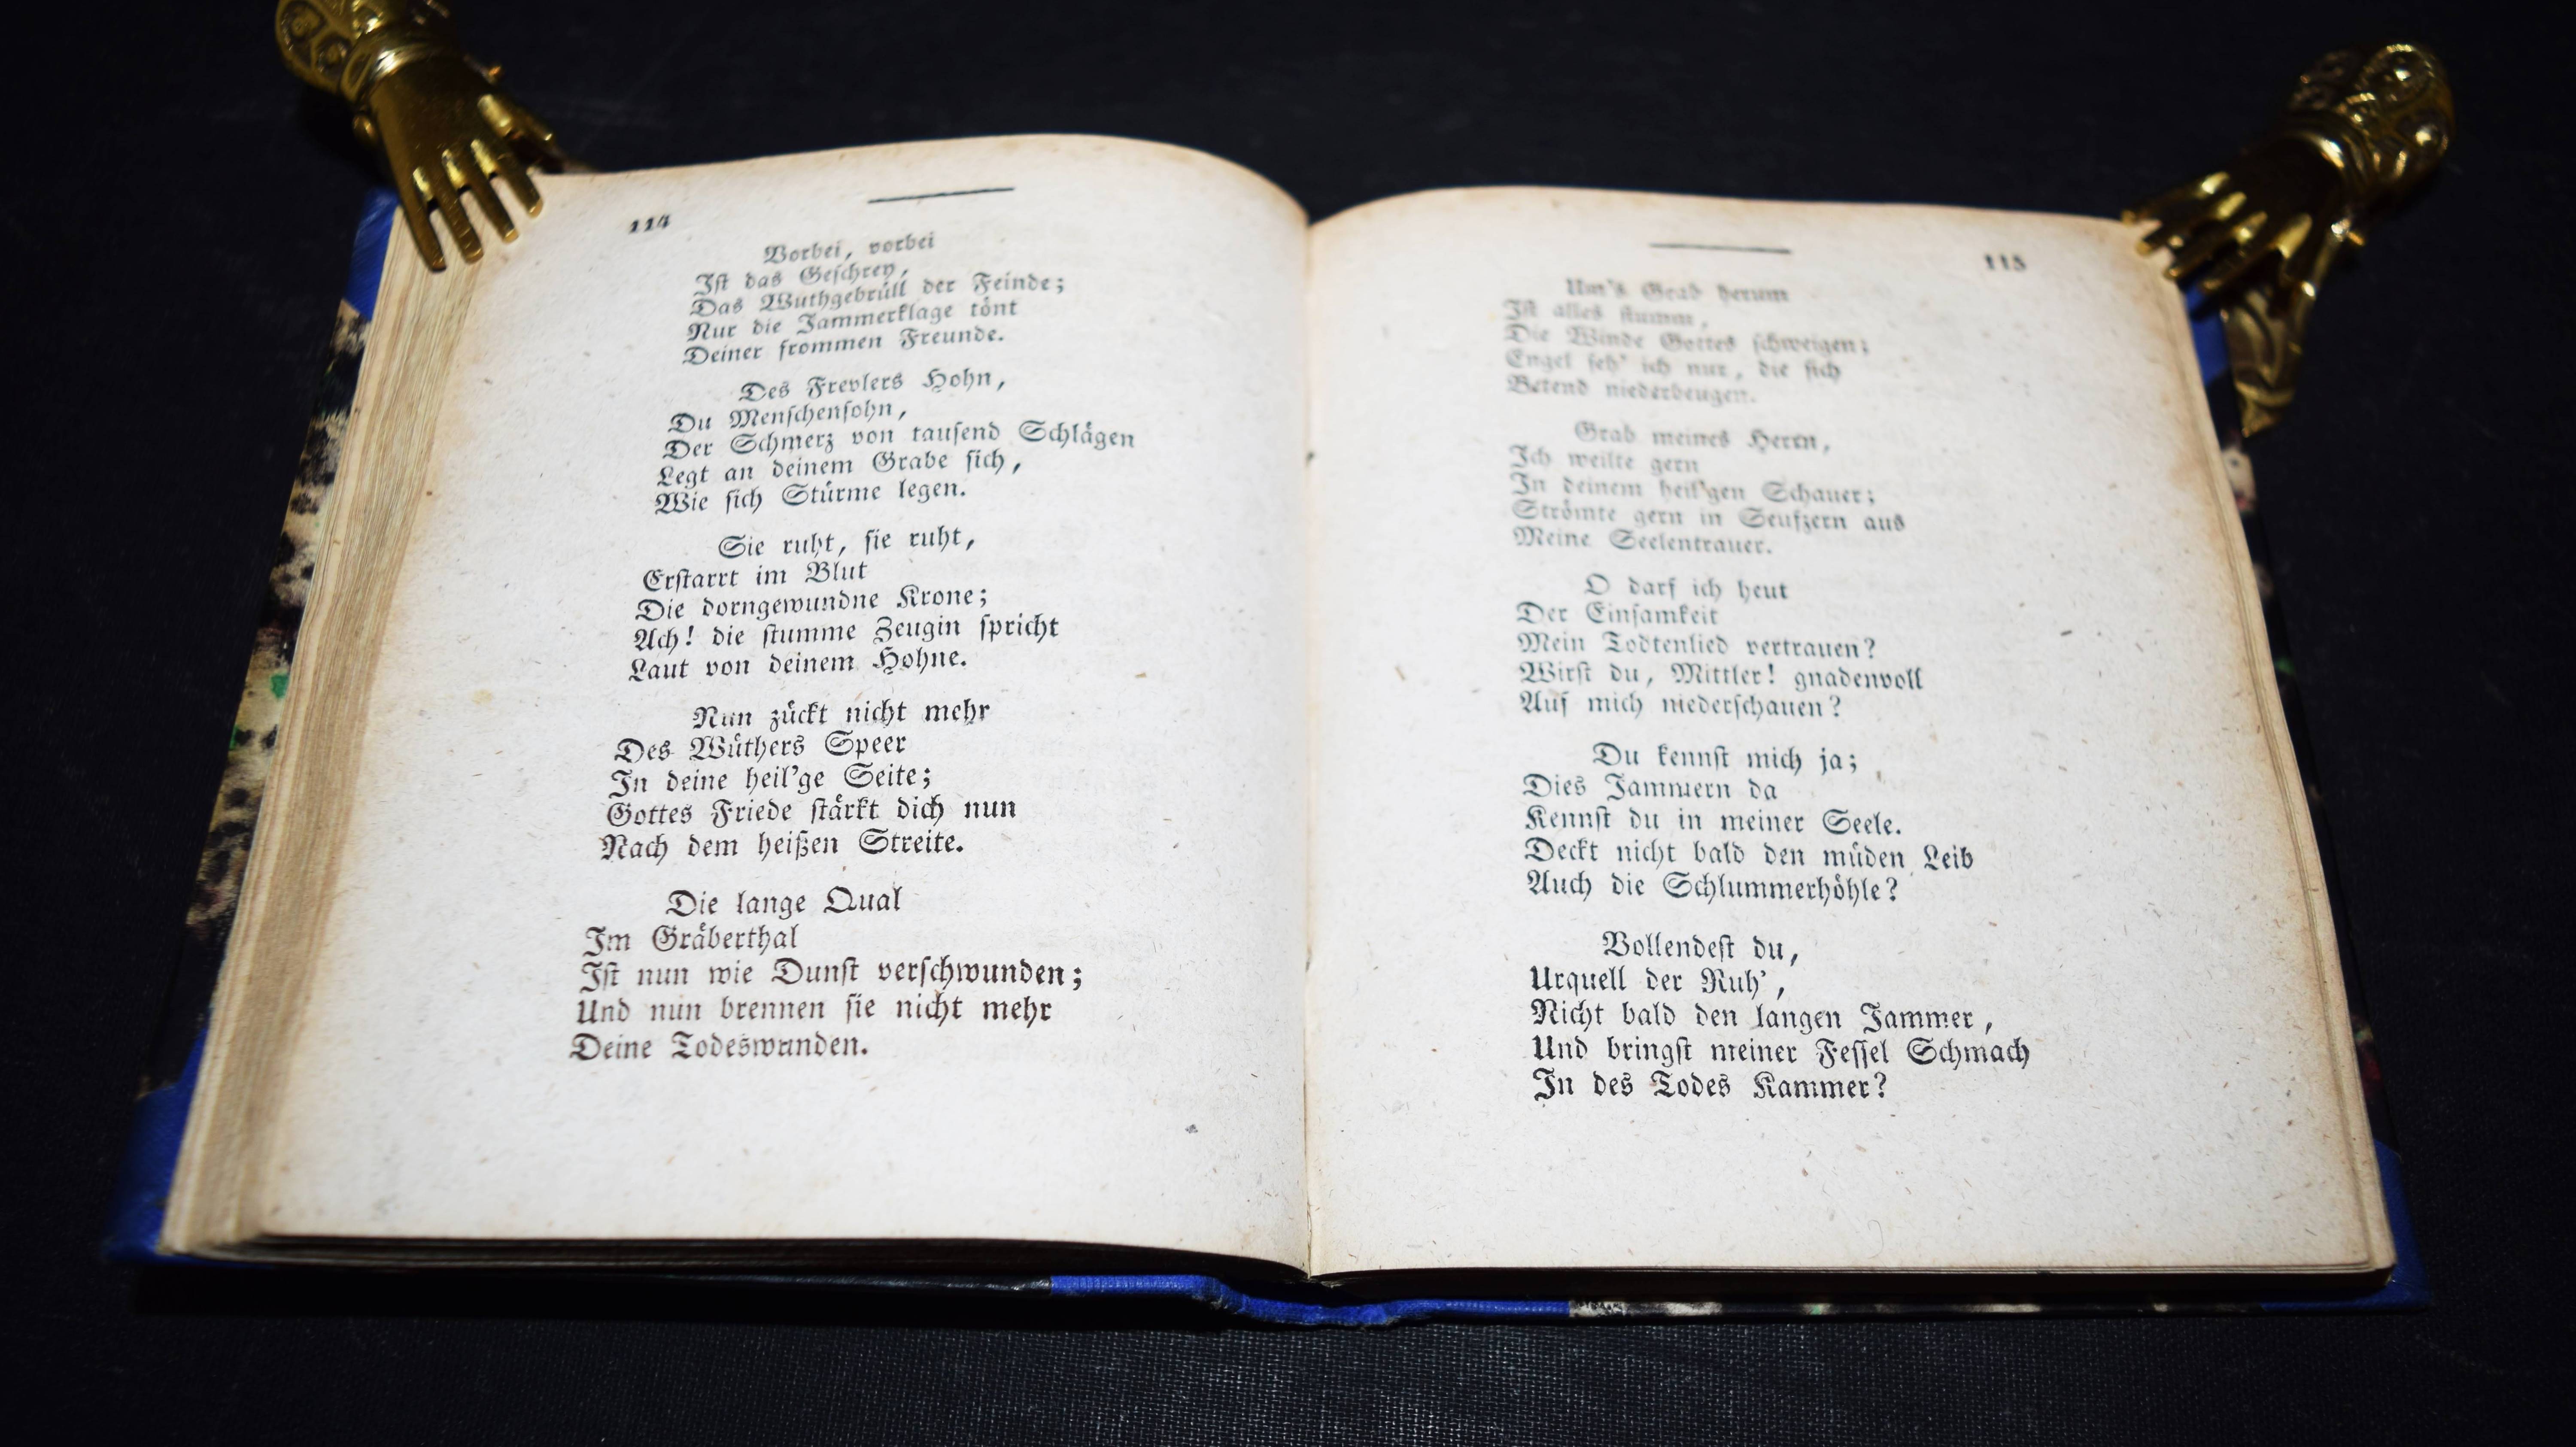 114
Vorbei, vorbei
Ist das Geschrey,
Das Wuthgebrüll der Feinde;
Nur die Jammerklage tönt
Deiner frommen Freunde.
Des Frevlers Hohn,
Du Menschensohn,
Der Schmerz von tausend Schlägen
Legt an deinem Grabe sich,
Wie sich Stürme legen.
Sie ruht, sie ruht,
Erstarrt im Blut
Die dorngewundne Krone;
Ach! die stumme Zeugin spricht
Laut von deinem Hohne.
Nun zückt nicht mehr
Des Wüthers Speer
In deine heil'ge Seite;
Gottes Friede stärkt dich nun
Nach dem heißen Streite.
Die lange Qual
Im Gräberthal
Ist nun wie Dunst verschwunden;
Und nun brennen sie nicht mehr
Deine Todeswunden.
115
Um's Grab herum
Ist alles stumm,
Die Winde Gottes schweigen;
Engel seh' ich nur, die sich
Betend niederbeugen.
Grab meines Herrn,
Ich weilte gern
In deinem heil'gen Schauer;
Strömte gern in Seufzern aus
Meine Seelentrauer.
O darf ich heut
Der Einsamkeit
Mein Todtenlied vertrauen?
Wirst du, Mittler! gnadenvoll
Auf mich niederschauen?
Du kennst mich ja;
Dies Jammern da
Kennst du in meiner Seele.
Deckt nicht bald den müden Leib
Auch die Schlummerhöhle?
Vollendest du,
Urquell der Ruh',
Nicht bald den langen Jammer,
Und bringst meiner Fessel Schmach
In des Todes Kammer?